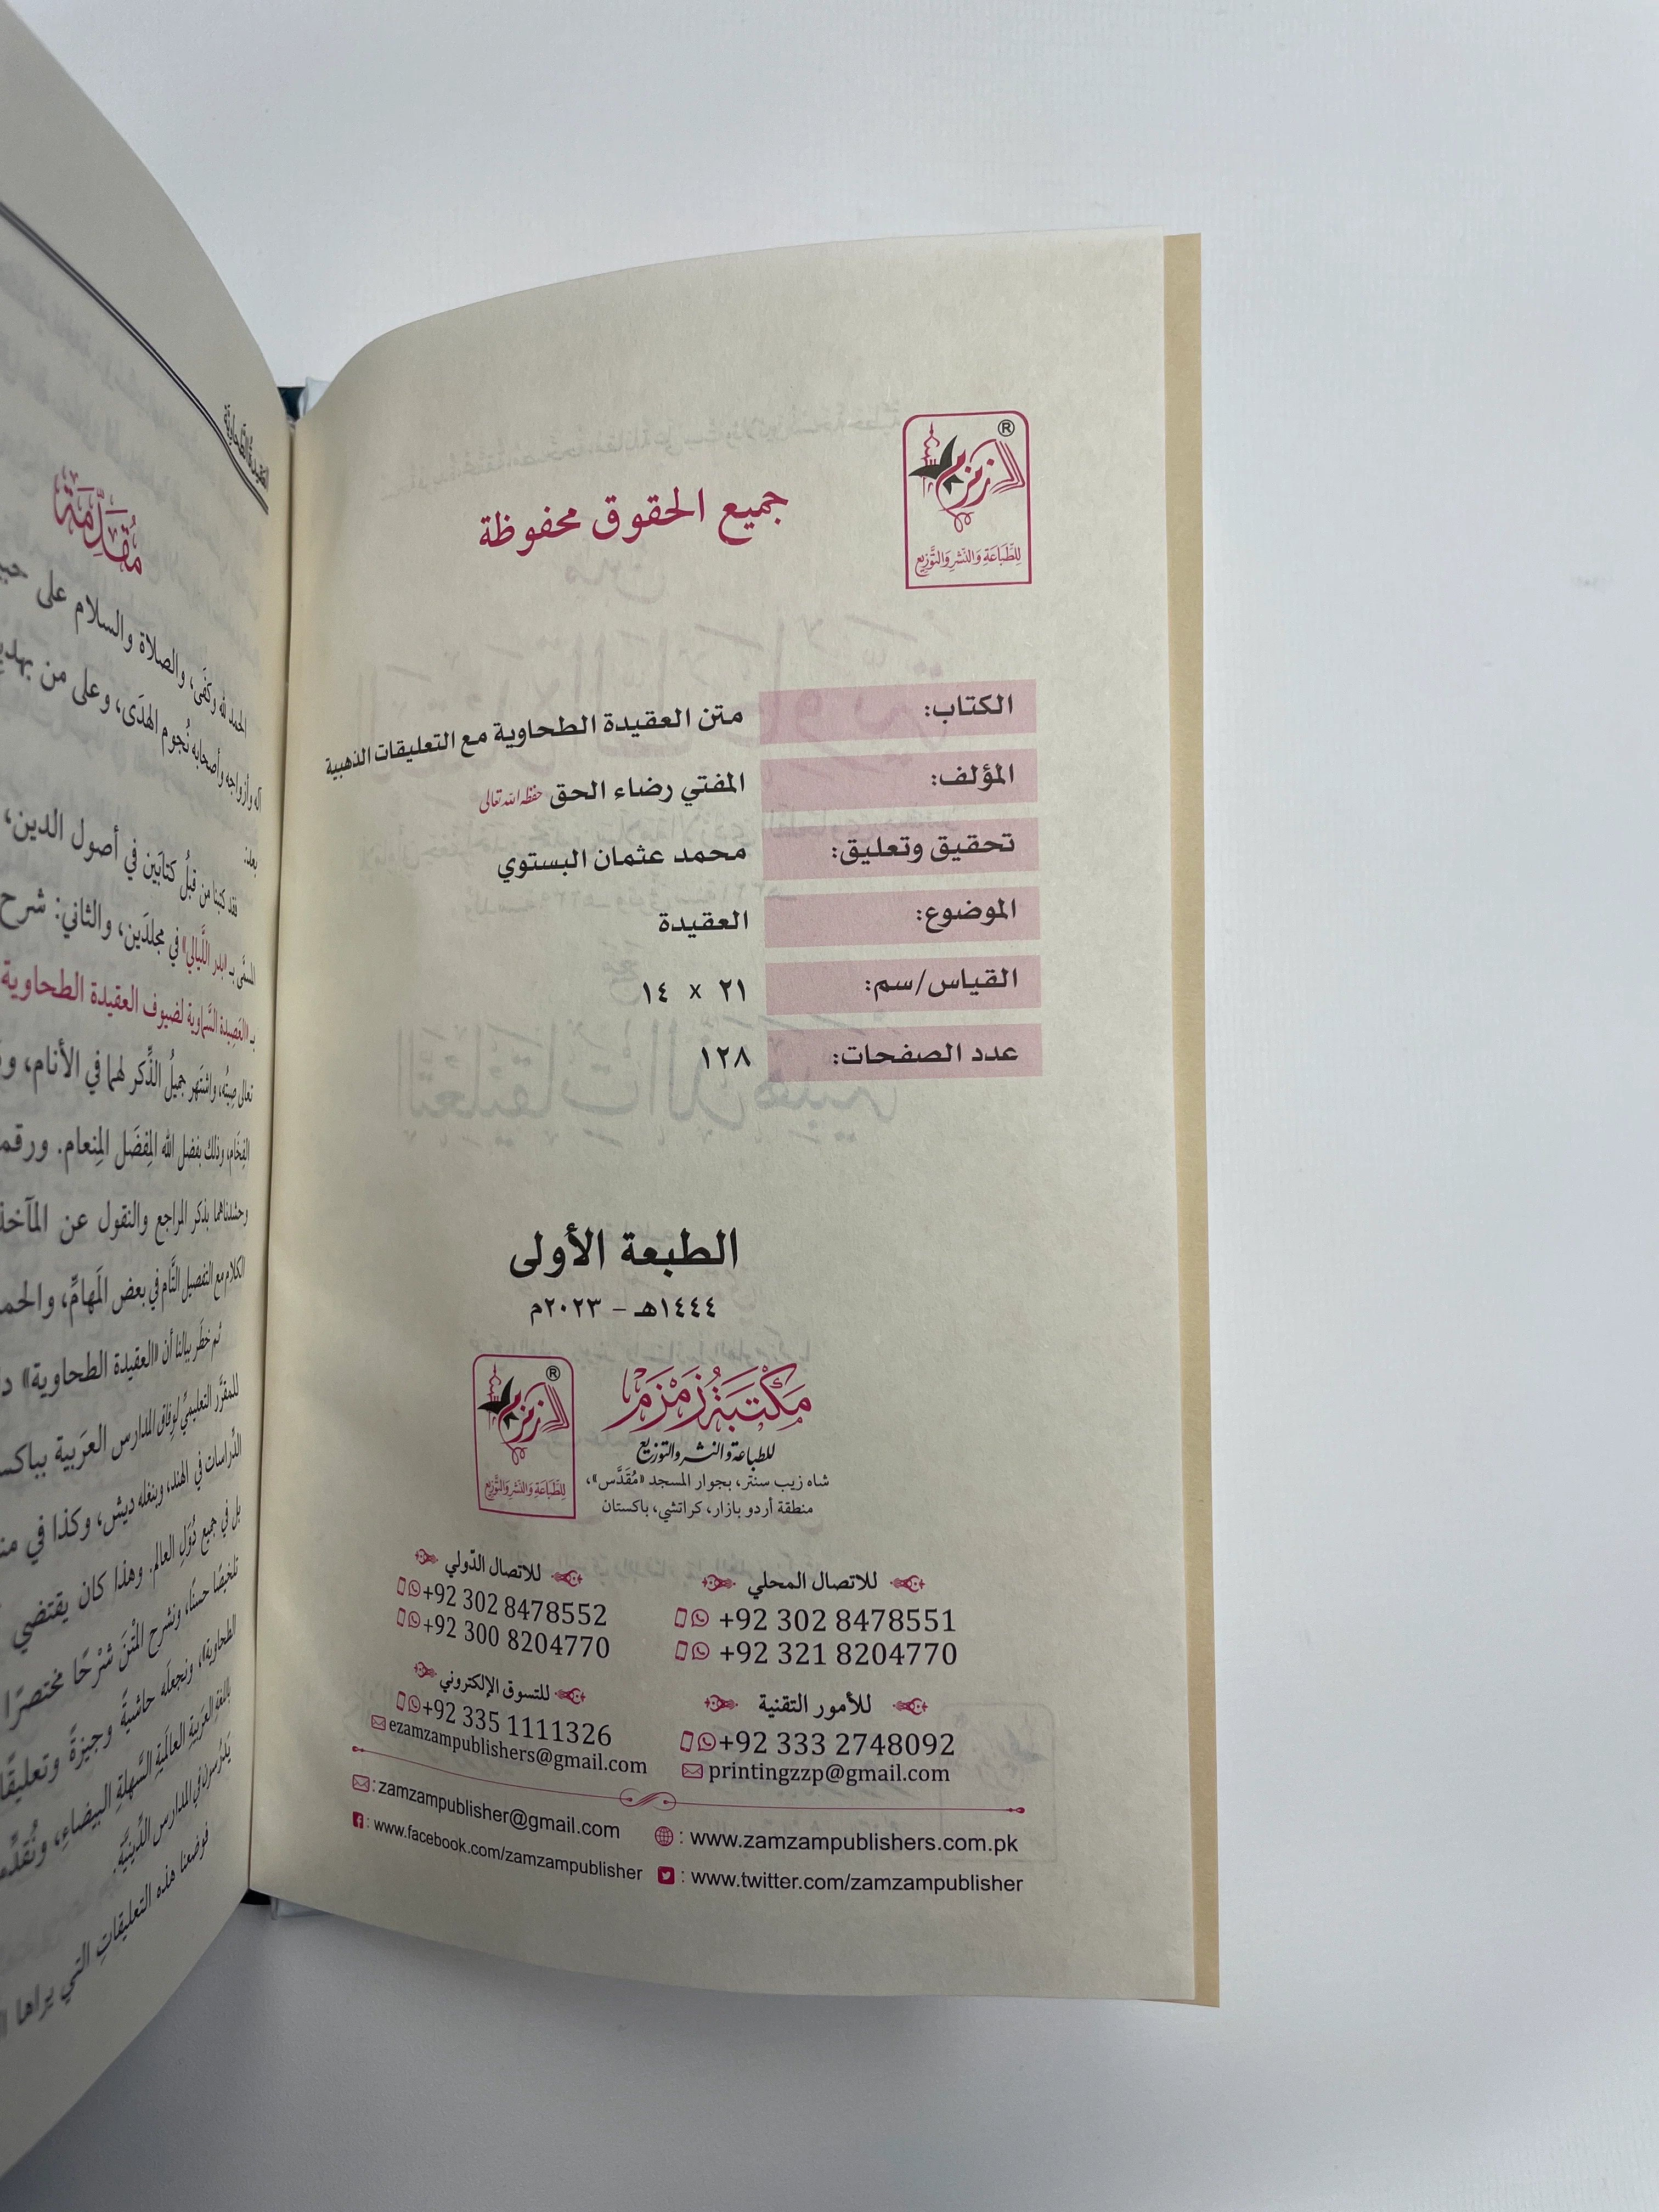 جميع الحقوق محفوظة
زمزم ®
للطباعة والنشر والتوزيع
الكتاب: متن العقيدة الطحاوية مع التعليقات الذهبية
المؤلف: المفتي رضاء الحق حفظه الله تعالى
تحقيق وتعليق: محمد عثمان البستوي
الموضوع: العقيدة
القياس/سم: ٢١ × ١٤
عدد الصفحات: ١٢٨
الطبعة الأولى
١٤٤٤هـ - ٢٠٢٣م
مَكْتَبَةُ زَمْزَمْ
للطباعة والنشر والتوزيع
شاه زيب سنتر، بجوار المسجد «مُقَدَّس»،
منطقة أردو بازار، كراتشي، باكستان
زمزم ®
للطباعة والنشر والتوزيع
للاتصال المحلي
+92 302 8478551
+92 321 8204770
للاتصال الدّولي
+92 302 8478552
+92 300 8204770
للأمور التقنية
+92 333 2748092
printingzzp@gmail.com
للتسوق الإلكتروني
+92 335 1111326
ezamzampublishers@gmail.com
: zamzampublisher@gmail.com
: www.zamzampublishers.com.pk
: www.facebook.com/zamzampublisher
: www.twitter.com/zamzampublisher
العقيدة الطحاوية
مُقَدِّمَة
الحمد لله وكفَى، والصلاة والسلام على
آله وأزواجه وأصحابه نُجوم الهدَى، وعلى من
بعد:
فقد كتبنا من قبلُ كتابَين في أصول الدين،
المسمَّى بـ «بدر اللَّيالي» في مجلدَين، والثاني: شرح
بـ «العَصِيدة السَّماوية لضيوف العقيدة الطحاوية
تعالى صِيتُه، واشتَهر جميلُ الذِّكر لهما في الأنام،
الفِخَام، وذلك بفضل الله المِفضَل المِنعام. ورقمنا
وحشدناهما بذكر المراجع والنقول عن المآخذ
الكلام مع التفصيل التَّام في بعض المَهامِّ، والحمد
ثم خطَر ببالنا أن «العقيدة الطحاوية»
للمقرَّر التعليميِّ لوِفاق المدارس العرَبية بباكستان
الدِّراسات في الهند، وبنغله ديش، وكذا في
بل في جميع دُوَل العالم. وهذا كان يقتضي
تلخيصًا حسنًا، ونشرح المَتْنَ شرْحًا مختصرًا
الطحاوية)، ونجعلَه حاشيةً وجيزةً وتعليقًا
باللغة العرَبيةِ العالَميةِ السَّهلةِ البيضاء، ونُقدِّمه
يَدرُسون في المدارس الدِّينيَّة.
فوضعنا هذه التعليقاتِ التي يراها